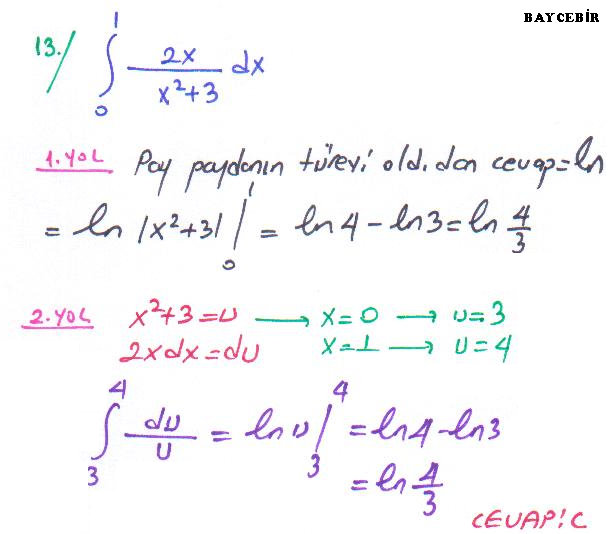 BAYCEBİR
13./ ∫₀¹ 2x/(x²+3) dx
1.YOL Pay paydanın türevi old.dan cevap=ln
= ln |x²+3| |₀¹ = ln4-ln3=ln 4/3
2.YOL x²+3=u → x=0 → u=3
2xdx=du x=1 → u=4
∫₃⁴ du/u = ln u |₃⁴ = ln4-ln3
= ln 4/3
CEVAP:C